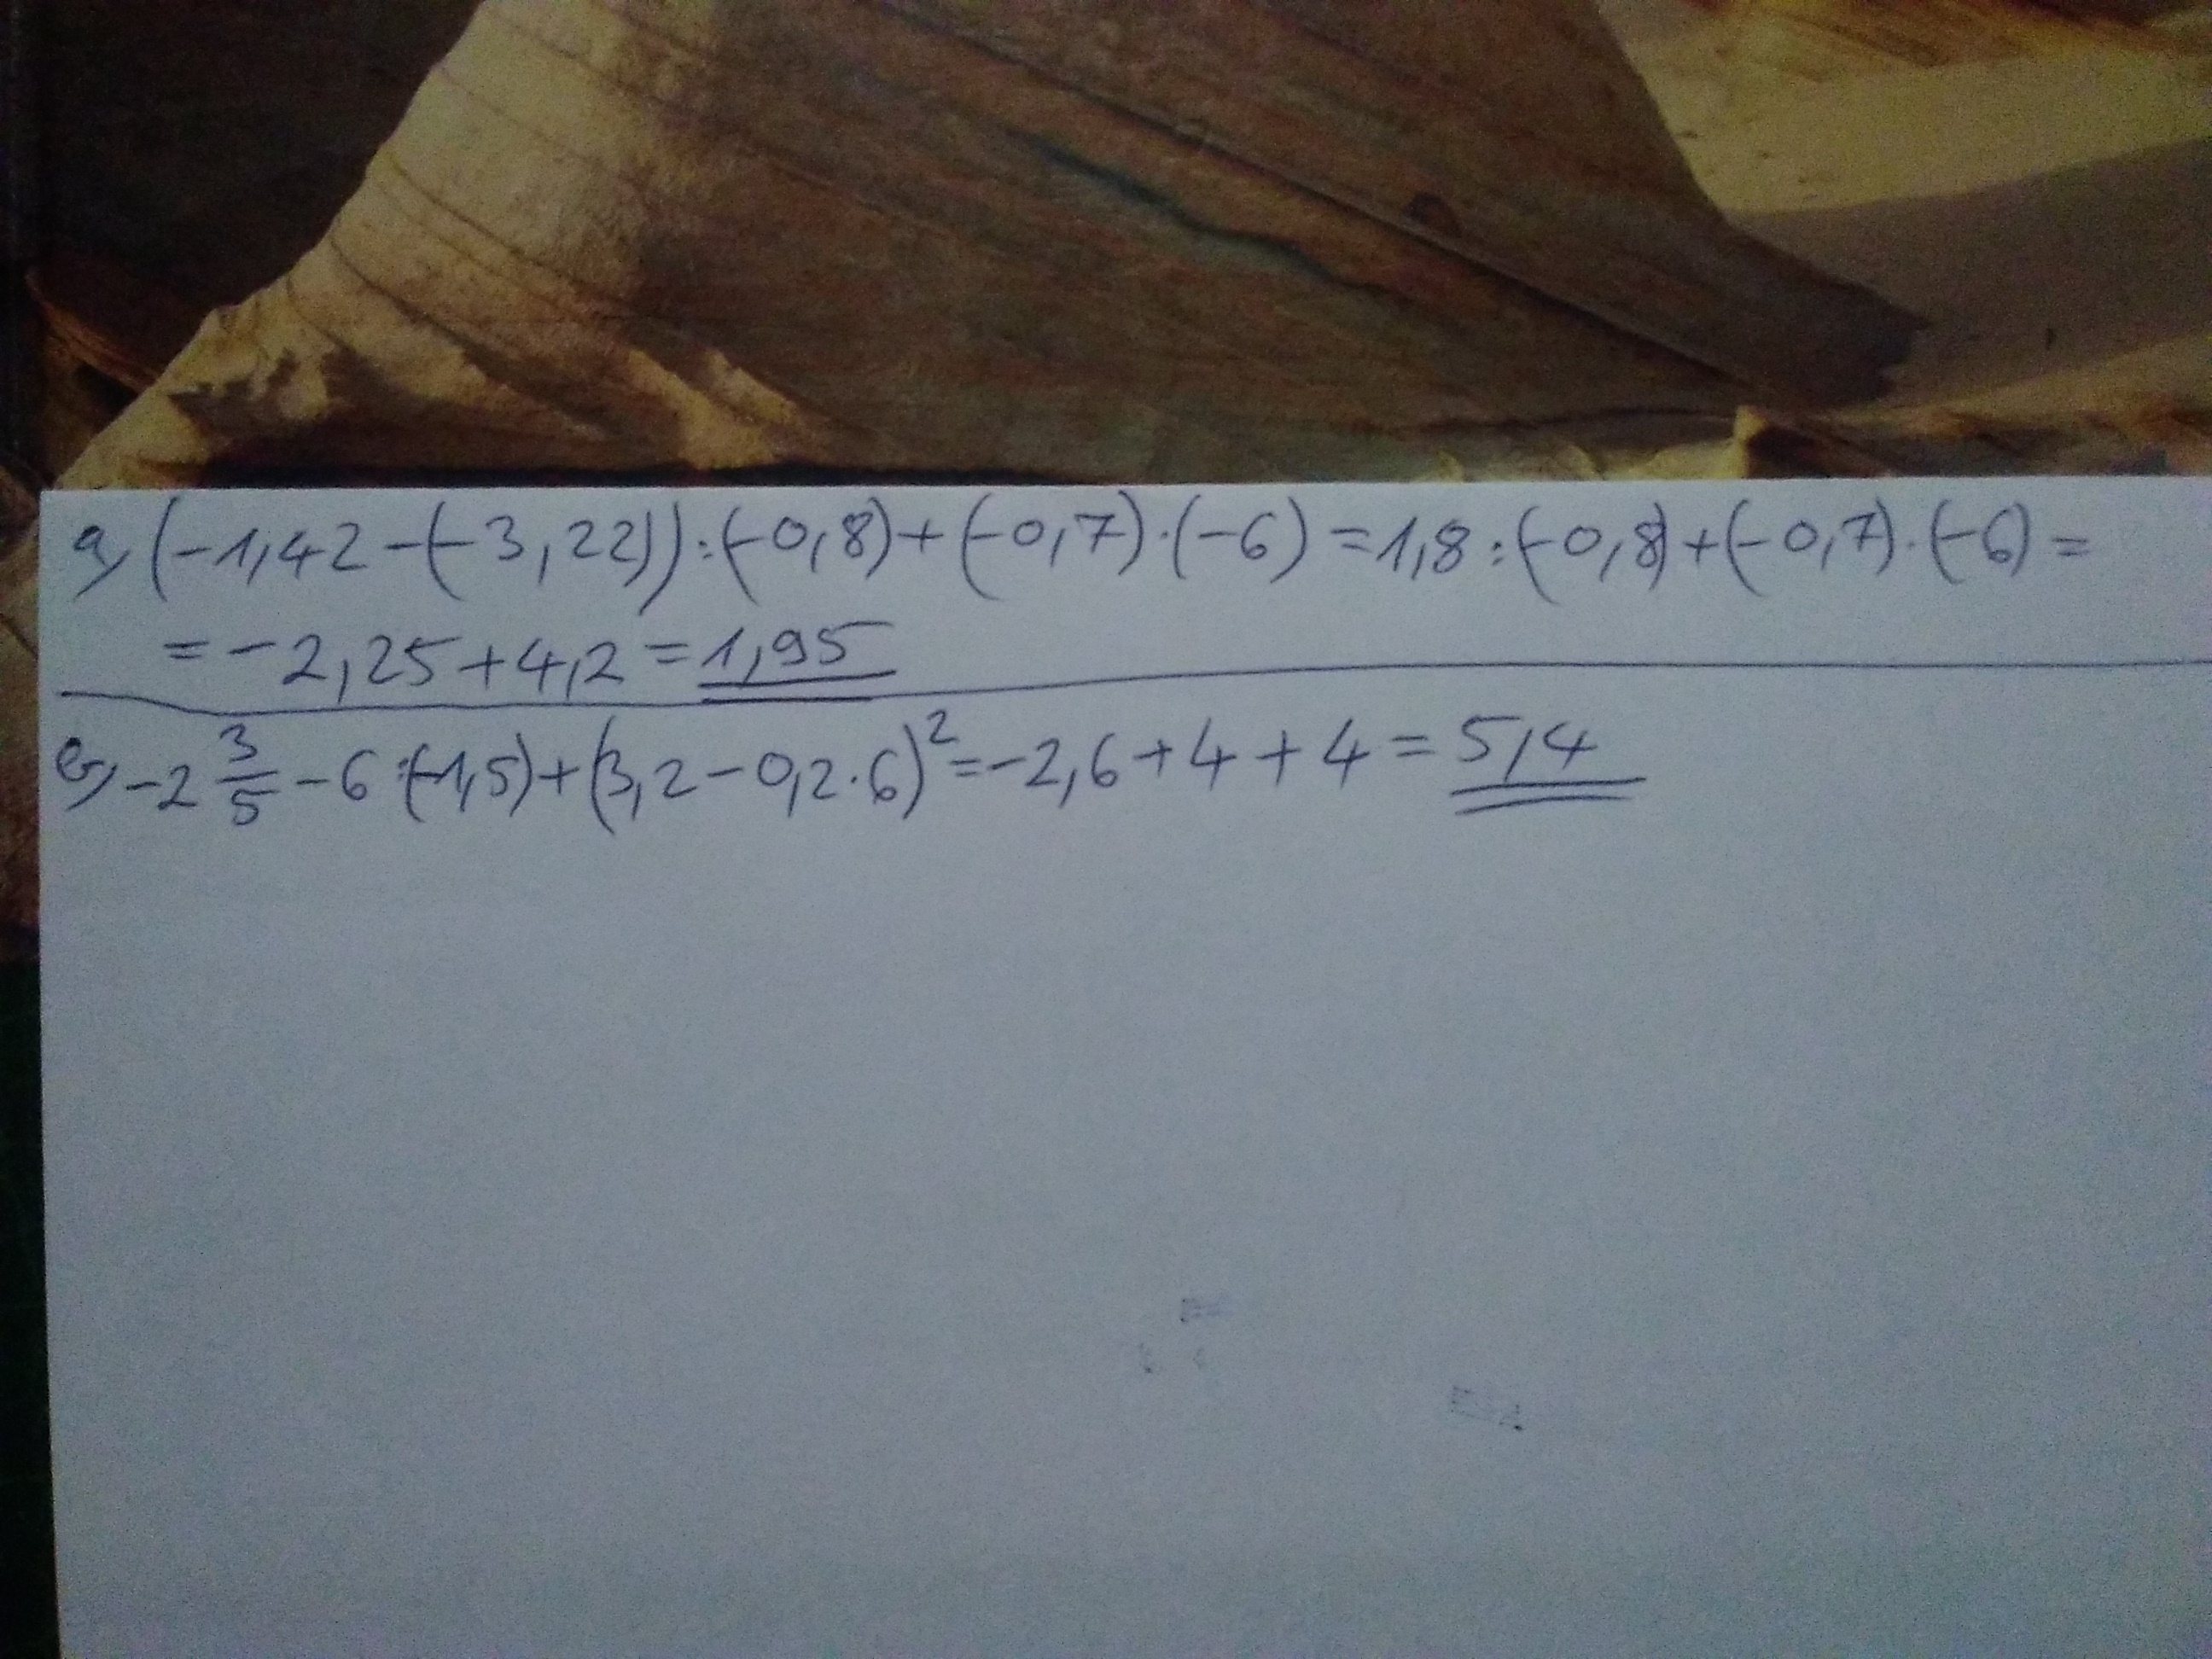 a, (-1,42-(-3,22)):(-0,8)+(-0,7)·(-6)=1,8:(-0,8)+(-0,7)·(-6)=
=-2,25+4,2=1,95
b, -2 3/5 -6:(-1,5)+(3,2-0,2·6)²=-2,6+4+4=5,4